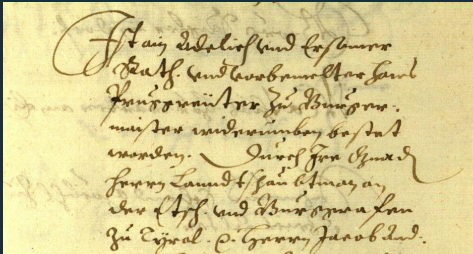 Ist ain Adelich vnd Ersamer
Rath. vnd vorbemelter Hans
zu Burger.
maister widerumben bestet
worden. Durch Ire Gnad
Herrn Lanndtshaubtman an
der Etsch. vnd Burggrafen
zu Tyrol. Herrn Jacob And.